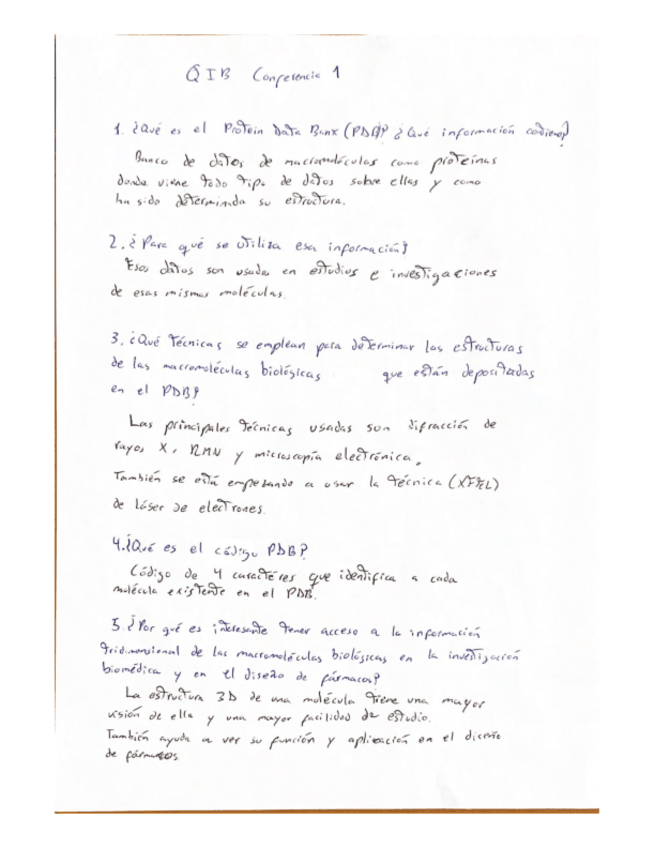 QIB Conferencia 1
1. ¿Qué es el Protein Data Bank (PDB)? ¿Qué información contiene?
Banco de datos de macromoléculas como proteínas
donde viene todo tipo de datos sobre ellas y como
ha sido determinada su estructura.
2. ¿Para qué se utiliza esa información?
Esos datos son usados en estudios e investigaciones
de esas mismas moléculas.
3. ¿Qué técnicas se emplean para determinar las estructuras
de las macromoléculas biológicas que están depositadas
en el PDB?
Las principales técnicas usadas son difracción de
rayos X, RMN y microscopía electrónica.
También se está empezando a usar la técnica (XFEL)
de láser de electrones.
4. ¿Qué es el código PDB?
Código de 4 caractéres que identifica a cada
molécula existente en el PDB.
5. ¿Por qué es interesante tener acceso a la información
tridimensional de las macromoléculas biológicas en la investigación
biomédica y en el diseño de fármacos?
La estructura 3D de una molécula tiene una mayor
visión de ella y una mayor facilidad de estudio.
También ayuda a ver su función y aplicación en el diseño
de fármacos.